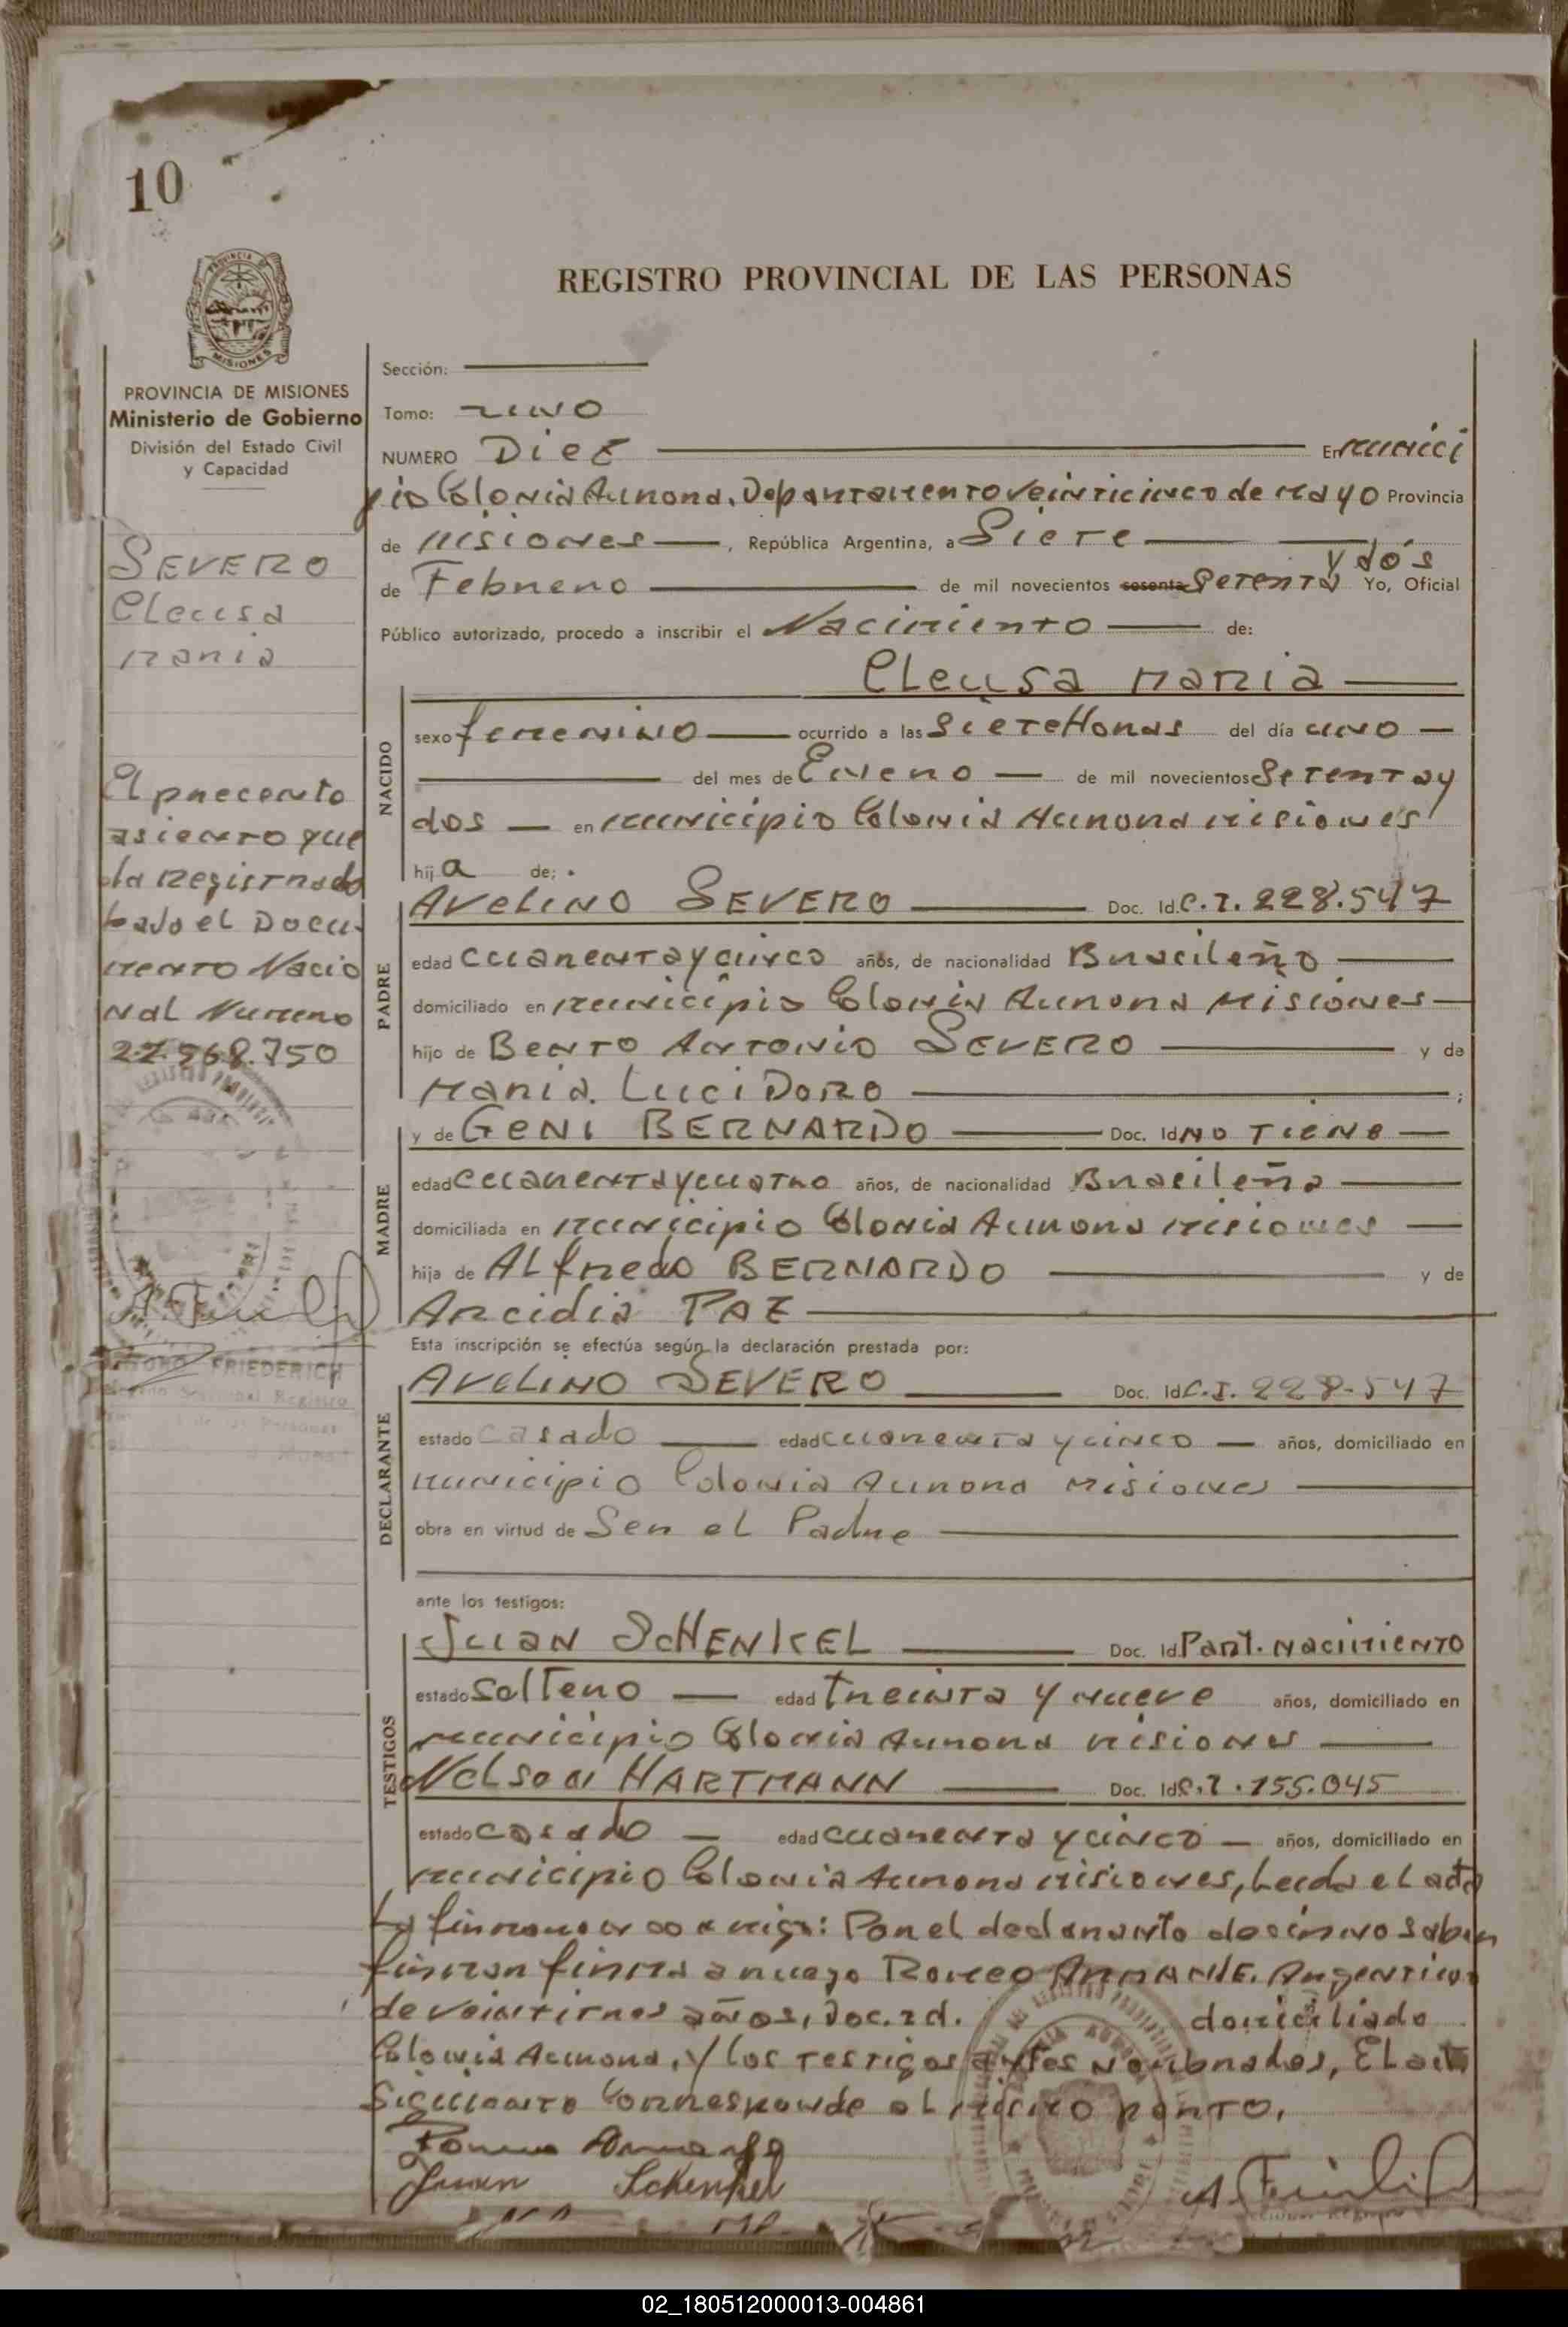 10
REGISTRO PROVINCIAL DE LAS PERSONAS
PROVINCIA DE MISIONES
Ministerio de Gobierno
División del Estado Civil
y Capacidad
SEVERO
Cleusa
Maria
El precente
asiento que
da registrado
bajo el Docu-
mento Nacio
nal Numero
22.968.750
FRIEDERICH
Sección:
Tomo: uno
NUMERO Diez En munici
pio Colonia Aurora, Departamento veinticinco de mayo Provincia
de misiones, República Argentina, a Siete
de Febrero de mil novecientos sesenta Setenta y dos Yo, Oficial
Público autorizado, procedo a inscribir el Nacimiento de:
Cleusa maria
NACIDO
sexo femenino ocurrido a las Siete Horas del día uno
del mes de Enero de mil novecientos Setenta y
dos en municipio Colonia Aurora misiones
hija de:
PADRE
Avelino SEVERO Doc. Id. C.I. 228.547
edad cuarenta y cinco años, de nacionalidad Brasileño
domiciliado en municipio Colonia Aurora Misiones
hijo de Bento Antonio SEVERO y de
Maria Lucidoro ;
MADRE
y de Geni BERNARDO Doc. Id. no tiene
edad cuarenta y cuatro años, de nacionalidad Brasileña
domiciliada en municipio Colonia Aurora misiones
hija de Alfredo BERNARDO y de
Arcidia PAZ
Esta inscripción se efectúa según la declaración prestada por:
DECLARANTE
Avelino SEVERO Doc. Id. C.I. 228.547
estado casado edad cuarenta y cinco años, domiciliado en
municipio Colonia Aurora misiones
obra en virtud de Ser el Padre
ante los testigos:
TESTIGOS
Juan SCHENKEL Doc. Id. Part. Nacimiento
estado Soltero edad treinta y nueve años, domiciliado en
municipio Colonia Aurora misiones
Nelson HARTMANN Doc. Id. C.I. 155.045
estado casado edad cuarenta y cinco años, domiciliado en
municipio Colonia Aurora misiones, Leida el acta
la firmaron conmigo: Por el declarante decir no saber
firmar firma a ruego Romeo Argentino
de veintitres años, Doc. Id. domiciliado
Colonia Aurora, y los testigos antes nombrados, El acta
Siguiente Corresponde al mismo parto.
Juan Schenkel
02_180512000013-004861